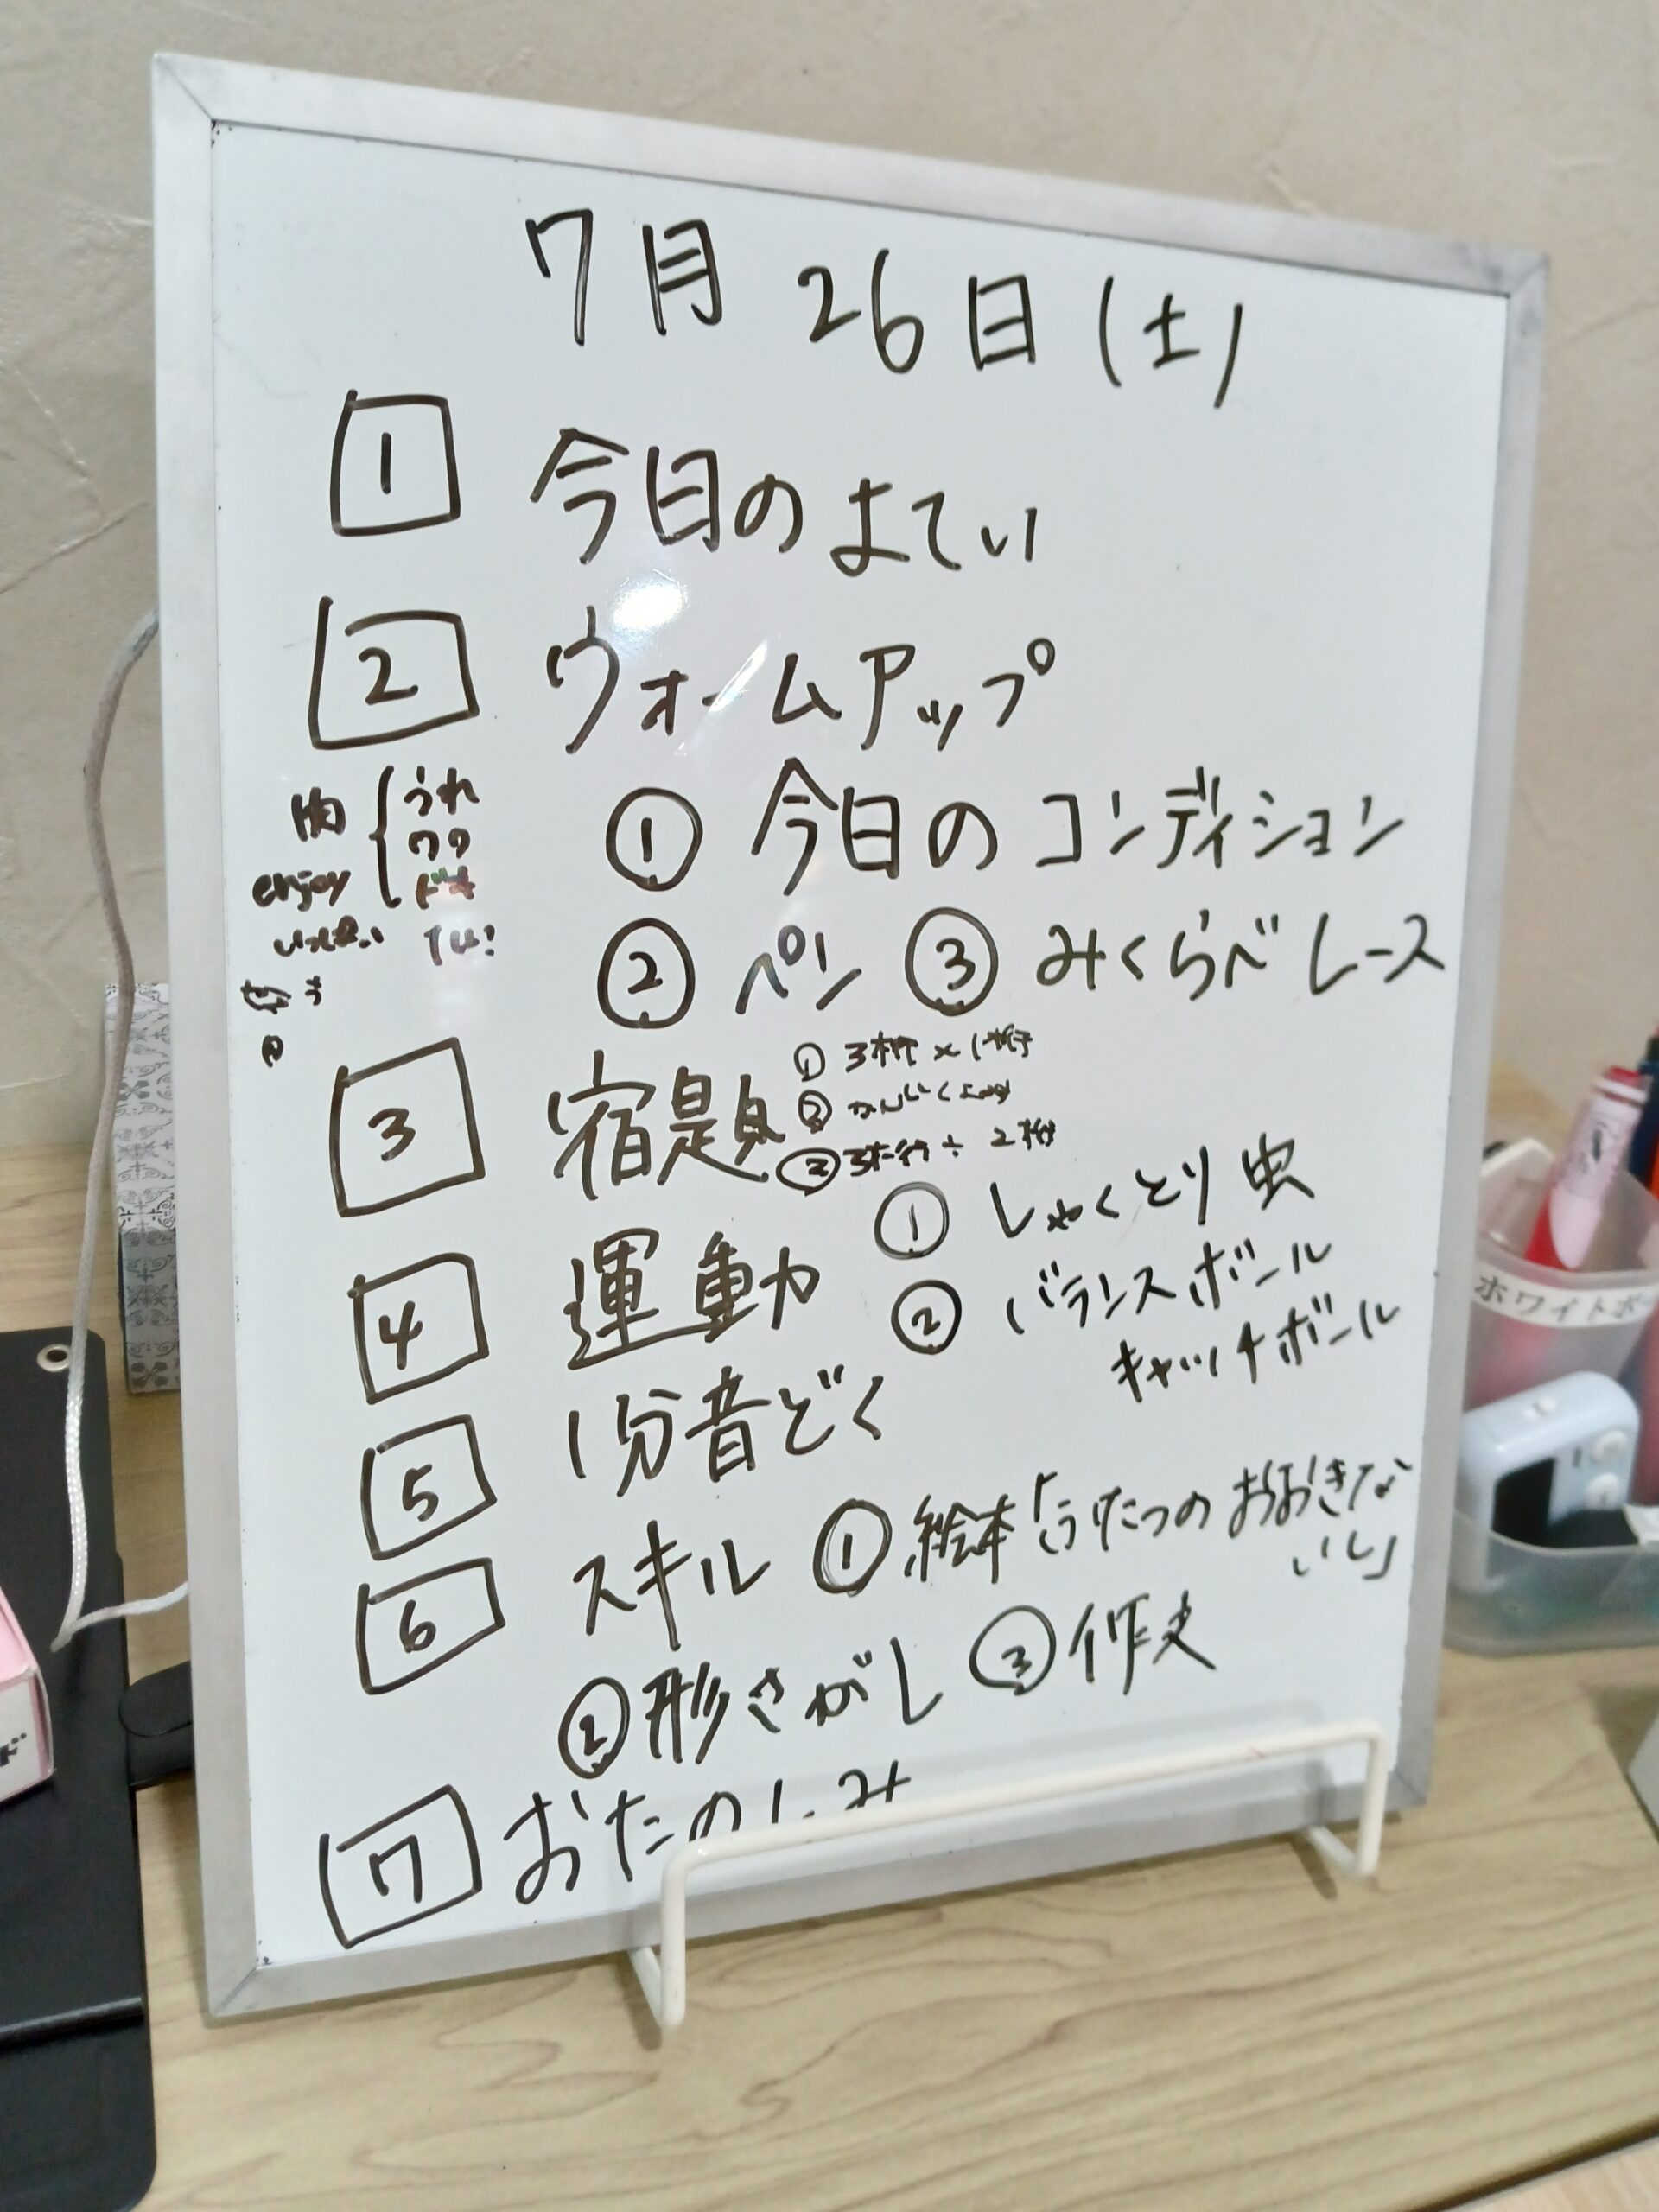 7月 26日 (土)
1 今日のよてい
2 ウォームアップ
肉 うれ
ワク
enjoy ドキ
① 今日のコンディション
② ペン ③ みくらべレース
3 宿題 ① 3桁×1桁
②
③ 3桁÷2桁
4 運動 ① しゃくとり虫
② バランスボール
キャッチボール
5 1分音どく
6 スキル ① 絵本「ふたつのおおきな
いし」
② 形さがし ③ 作文
7 おたのしみ
ホワイトボー
ド